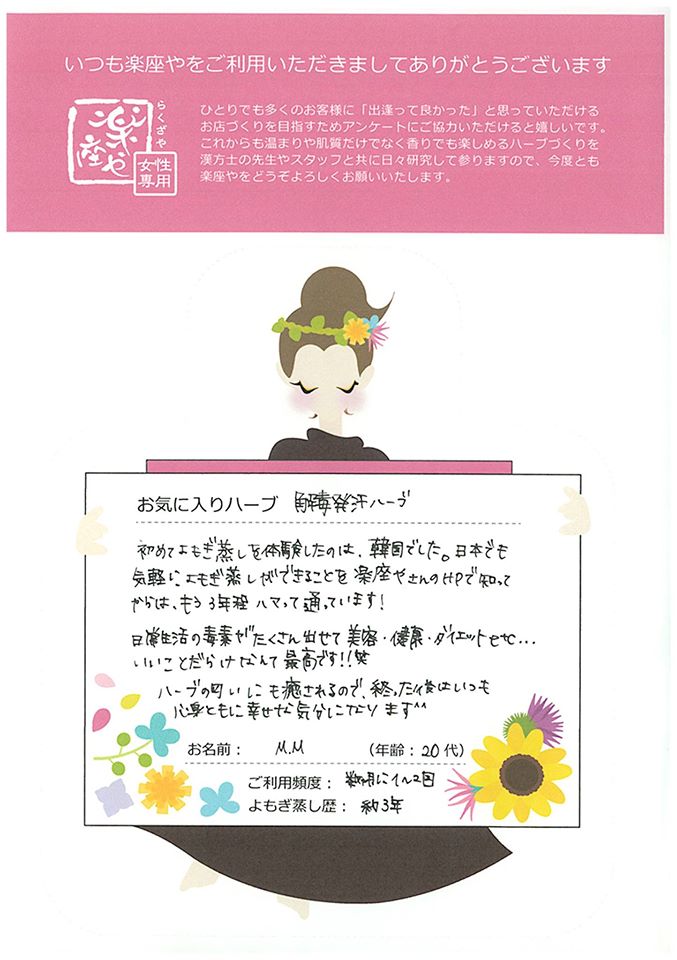 いつも楽座やをご利用いただきましてありがとうございます
らくざや
楽座や
女性専用
ひとりでも多くのお客様に「出逢って良かった」と思っていただける
お店づくりを目指すためアンケートにご協力いただけると嬉しいです。
これからも温まりや肌質だけでなく香りでも楽しめるハーブづくりを
漢方士の先生やスタッフと共に日々研究して参りますので、今度とも
楽座やをどうぞよろしくお願いいたします。
お気に入りハーブ 解毒発汗ハーブ
初めてよもぎ蒸しを体験したのは、韓国でした。日本でも
気軽によもぎ蒸しができることを楽座やさんのHPで知って
からは、もう3年程ハマって通っています!
日常生活の毒素がたくさん出せて美容・健康・ダイエットetc...
いいことだらけなんて最高です!!
ハーブの匂いにも癒されるので、終った後はいつも
心身ともに幸せな気分になります^^
お名前: M.M (年齢:20代)
ご利用頻度: 数ヶ月に1~2回
よもぎ蒸し歴: 約3年